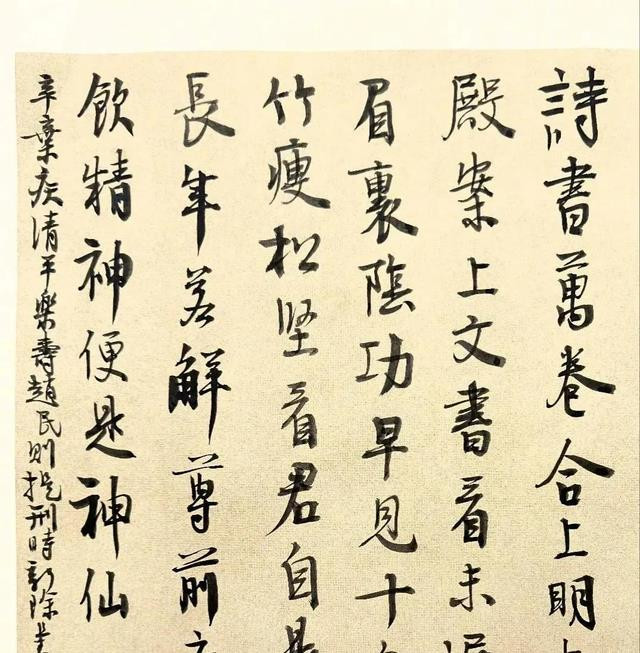 詩書萬卷合上明
殿案上文書看未
眉裏陰功早見十
竹瘦松坚看君自是
長年若解尊前
飲精神便是神仙
辛棄疾清平樂壽趙民則提刑時新除